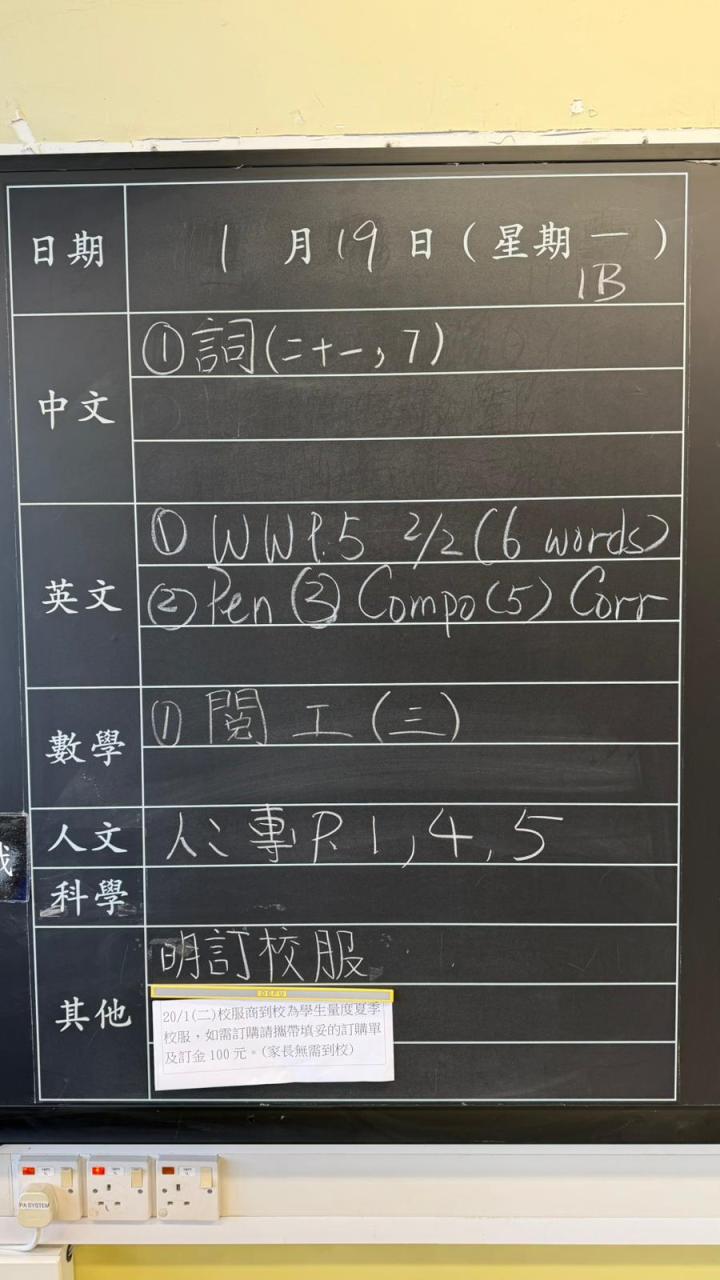 日期 1 月 19 日 ( 星期 一 )
1B
中文 ①詞(二十一, 7)
英文 ① WW P.5 2/2 (6 words)
② Pen ③ Compo(5) Corr
數學 ① 閱 工 (三)
人文 人: 專 P. 1, 4, 5
科學
其他 明訂校服
DEFU
20/1(二)校服商到校為學生量度夏季
校服，如需訂購請攜帶填妥的訂購單
及訂金 100 元。(家長無需到校)
PA SYSTEM